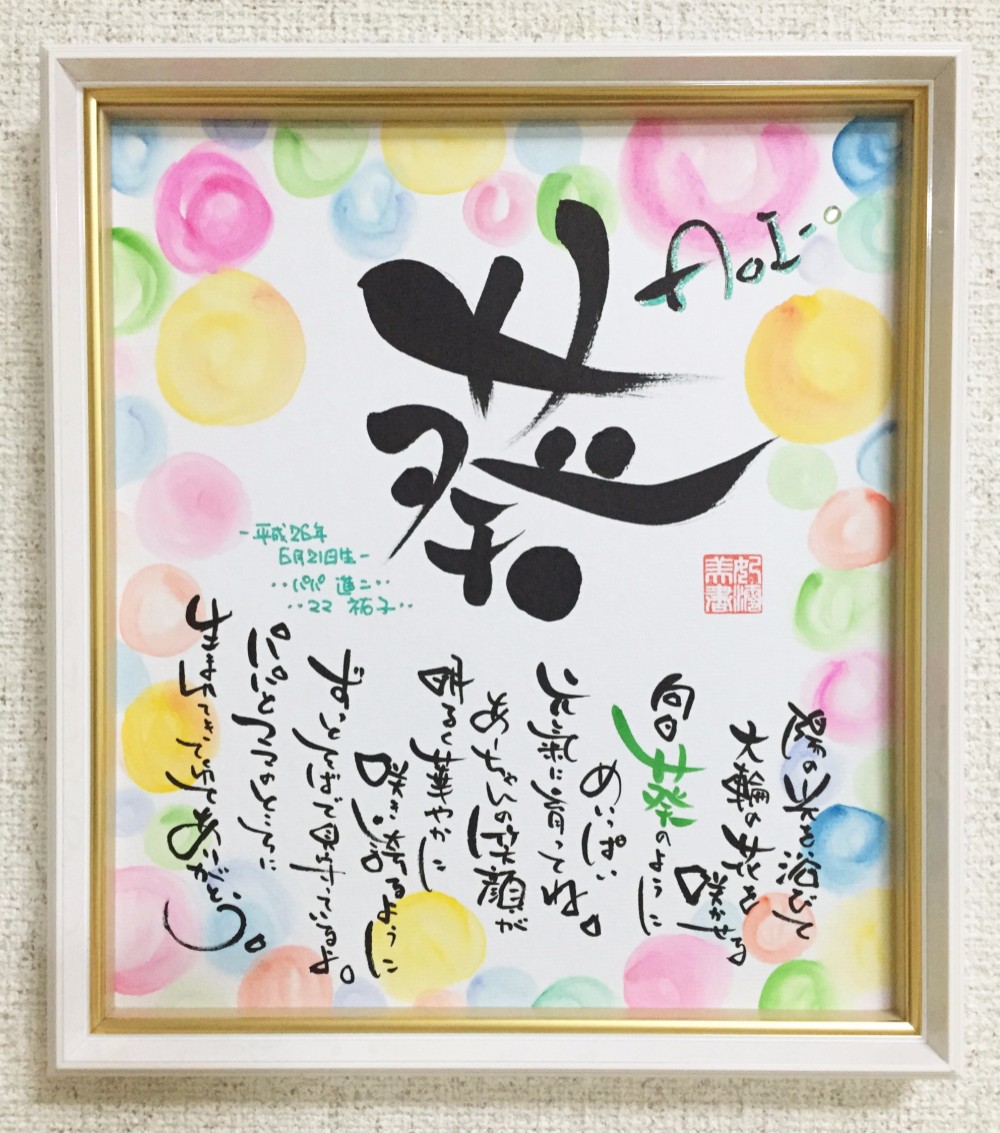 葵
Aoi
-平成26年
6月21日生-
‥パパ 蓮二‥
‥ママ 祐子‥
陽の光を浴びて
大輪の花を
咲かせる
向日葵のように
めいっぱい
元氣に育ってね。
あーちゃんの笑顔が
明るく華やかに
咲き誇るように
ずっとそばで見守っているよ。
パパとママのところに
生まれてきてくれてありがとう。